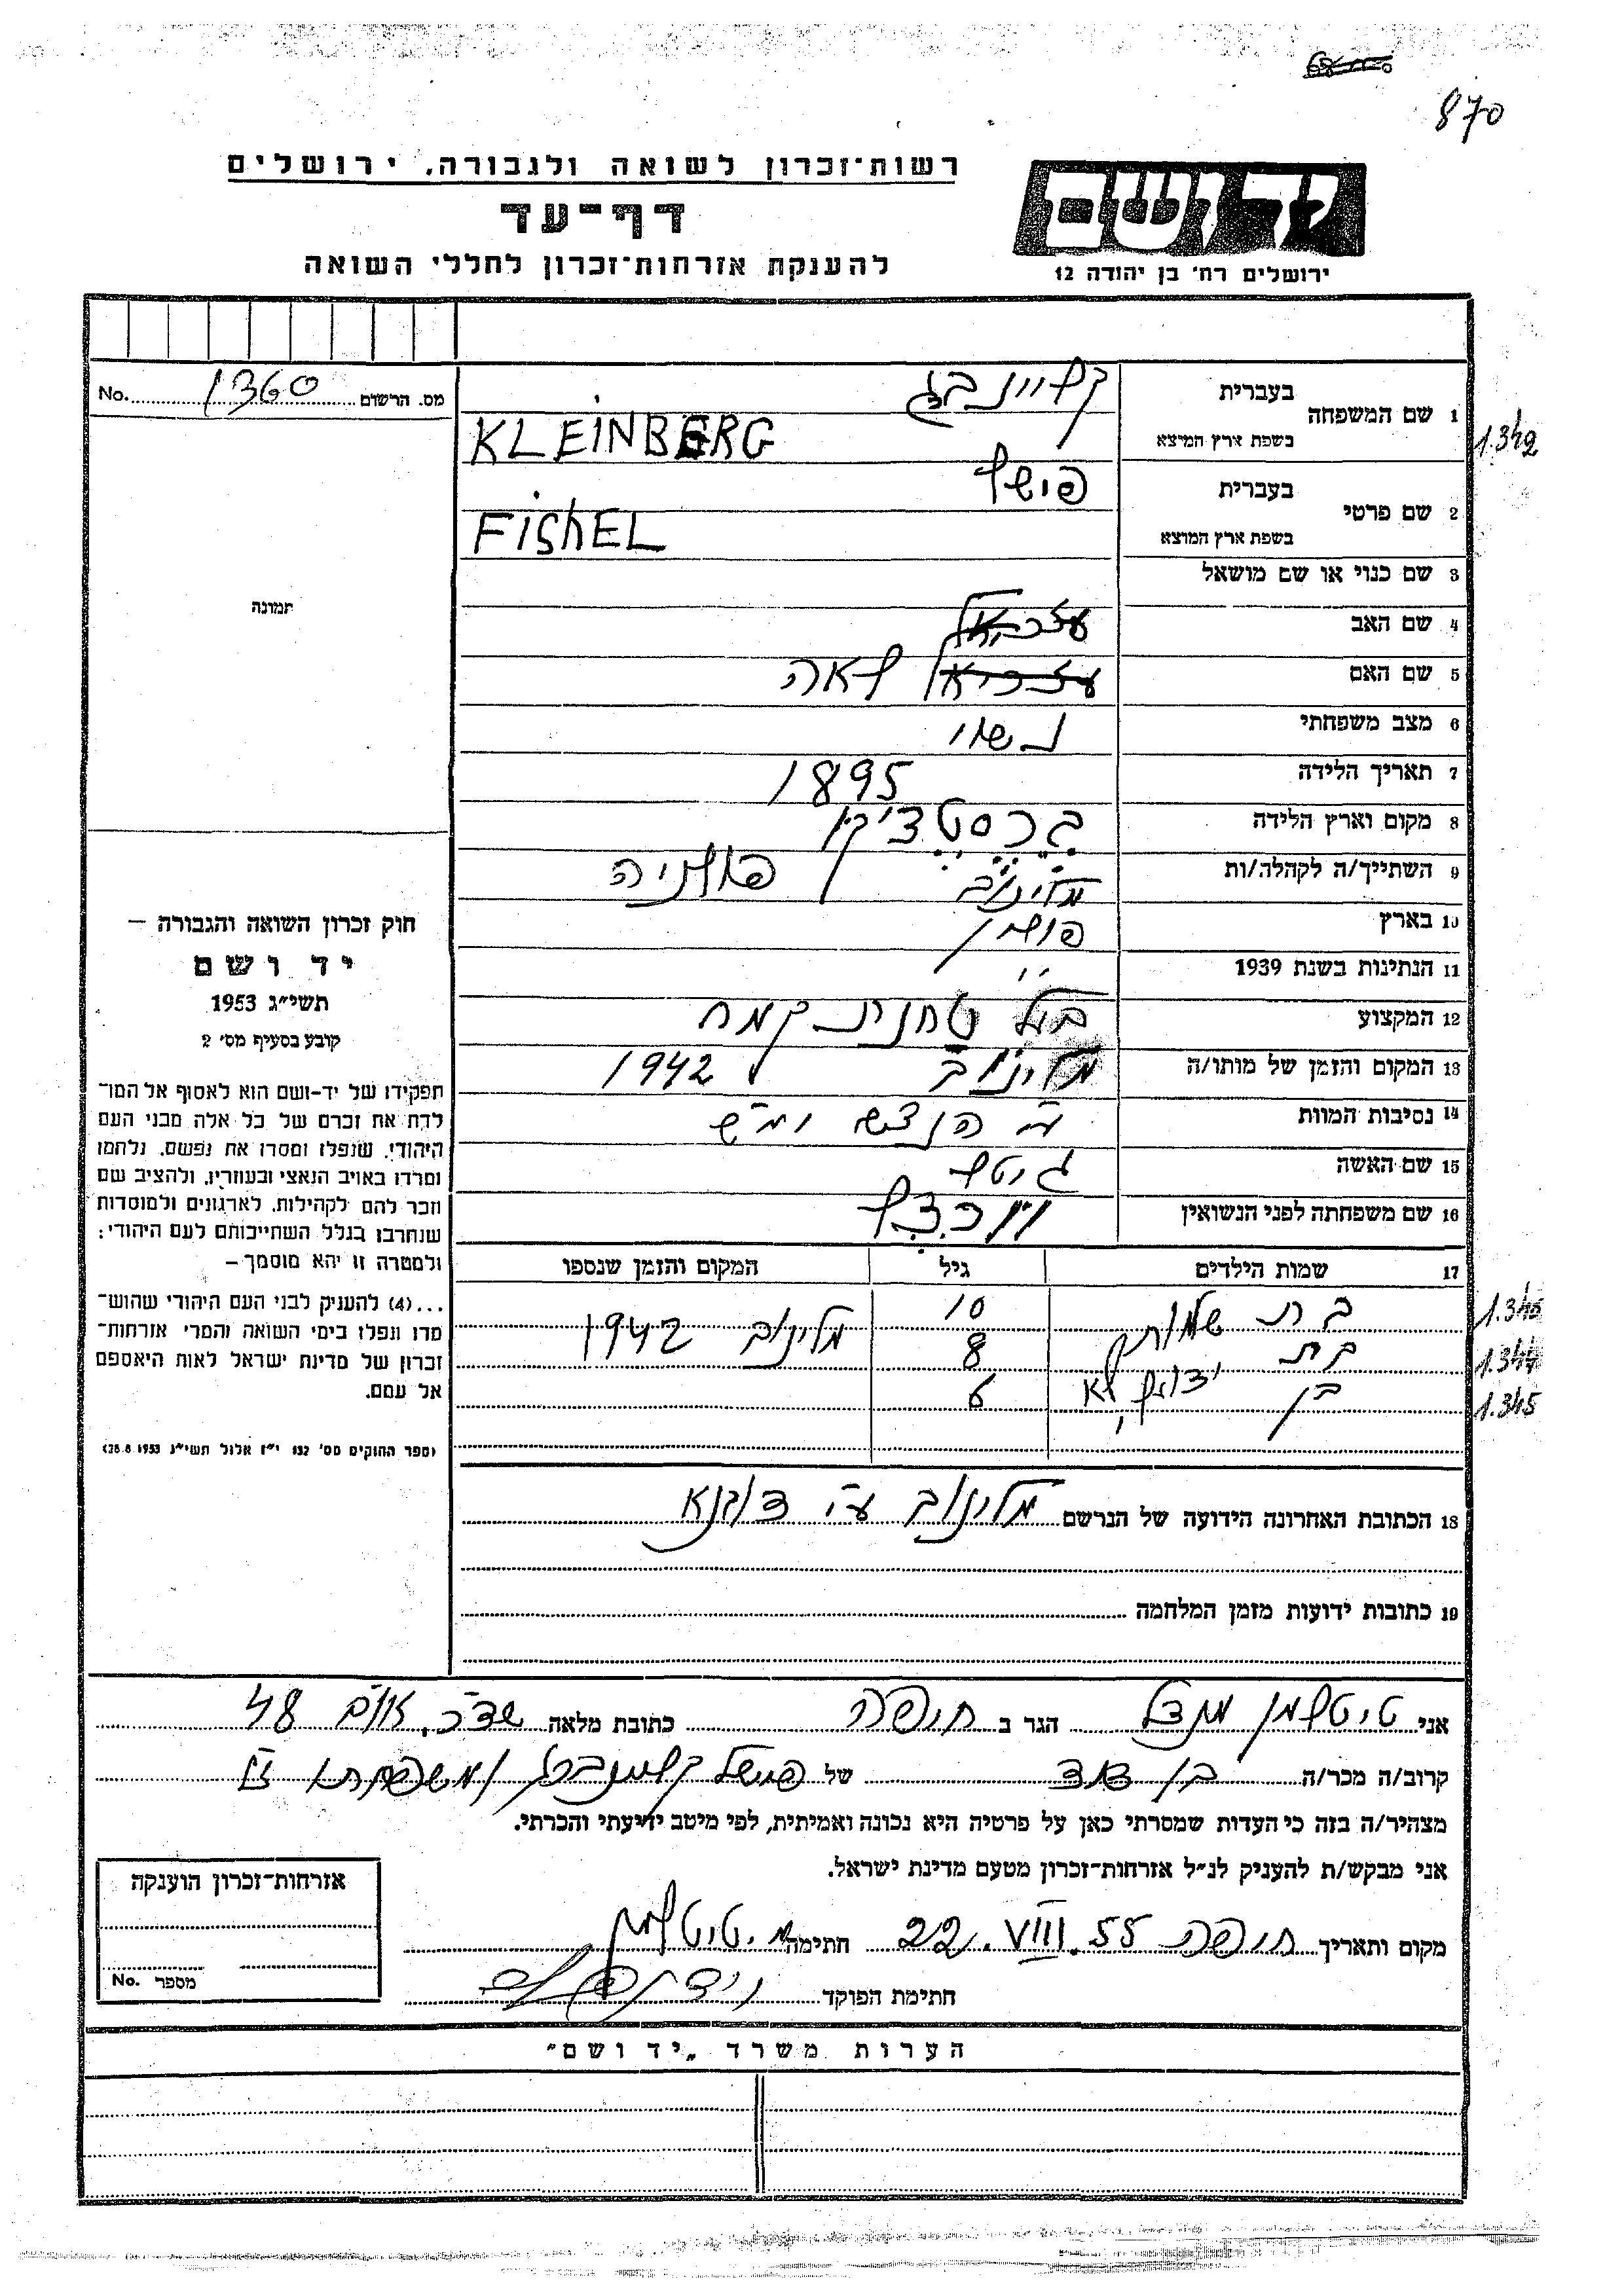 870
רשות־זכרון לשואה ולגבורה, ירושלים
דף־עד
להענקת אזרחות־זכרון לחללי השואה
יד ושם
ירושלים רח׳ בן יהודה 12
מס. הרשום 1360 No.
1 שם המשפחה
בעברית קליינברג
בשפת ארץ המוצא KLEINBERG
1.342
2 שם פרטי
בעברית פישל
בשפת ארץ המוצא FISHEL
3 שם כנוי או שם מושאל
4 שם האב
5 שם האם לאה
6 מצב משפחתי נשוי
7 תאריך הלידה 1895
8 מקום וארץ הלידה
9 השתייך/ה לקהלה/ות מלינוב פולניה
10 בארץ פולין
11 הנתינות בשנת 1939 ״
12 המקצוע בעל טחנת קמח
13 המקום והזמן של מותו/ה מלינוב 1942
14 נסיבות המוות
15 שם האשה גיטל
16 שם משפחתה לפני הנשואין
17 שמות הילדים גיל המקום והזמן שנספו
בת 10
1.345
בת 8 מלינוב 1942
1.344
בן 6
1.345
18 הכתובת האחרונה הידועה של הנרשם מלינוב ע״י דובנא
19 כתובות ידועות מזמן המלחמה
תמונה
חוק זכרון השואה והגבורה —
יד ושם
תשי״ג 1953
קובע בסעיף מס׳ 2
תפקידו של יד־ושם הוא לאסוף אל המו־
לדת את זכרם של כל אלה מבני העם
היהודי, שנפלו ומסרו את נפשם, נלחמו
ומרדו באויב הנאצי ובעוזריו, ולהציב שם
וזכר להם לקהילות, לארגונים ולמוסדות
שנחרבו בגלל השתייכותם לעם היהודי:
ולמטרה זו יהא מוסמך —
...(4) להעניק לבני העם היהודי שהוש־
מדו ונפלו בימי השואה והמרי אזרחות־
זכרון של מדינת ישראל לאות היאספם
אל עמם.
(ספר החוקים מס׳ 132 י״ז אלול תשי״ג 28.8.1953)
אני טיטלמן מנדל הגר ב חיפה כתובת מלאה 48
קרוב/ה מכר/ה בן דוד של פישל קליינברג ומשפחתו
מצהיר/ה בזה כי העדות שמסרתי כאן על פרטיה היא נכונה ואמיתית, לפי מיטב ידיעתי והכרתי.
אני מבקש/ת להעניק לנ״ל אזרחות־זכרון מטעם מדינת ישראל.
מקום ותאריך חיפה 22.VIII.55 חתימה מ. טיטלמן
חתימת הפוקד
אזרחות־זכרון הוענקה
מספר No.
הערות משרד ״יד ושם״